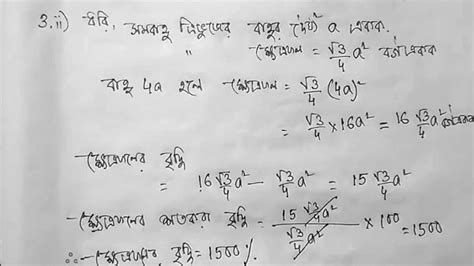 3.ii) ধরি, সমবাহু ত্রিভুজের বাহুর দৈর্ঘ্য a একক।
" ক্ষেত্রফল = √3/4 a² বর্গএকক
বাহু 4a হলে ক্ষেত্রফল = √3/4 (4a)²
= √3/4 × 16a² = 16 √3/4 a²
ক্ষেত্রফলের বৃদ্ধি
= 16 √3/4 a² - √3/4 a² = 15 √3/4 a²
ক্ষেত্রফলের শতকরা বৃদ্ধি = (15 √3/4 a²)/(√3/4 a²) × 100 = 1500
∴ ক্ষেত্রফলের বৃদ্ধি = 1500%.